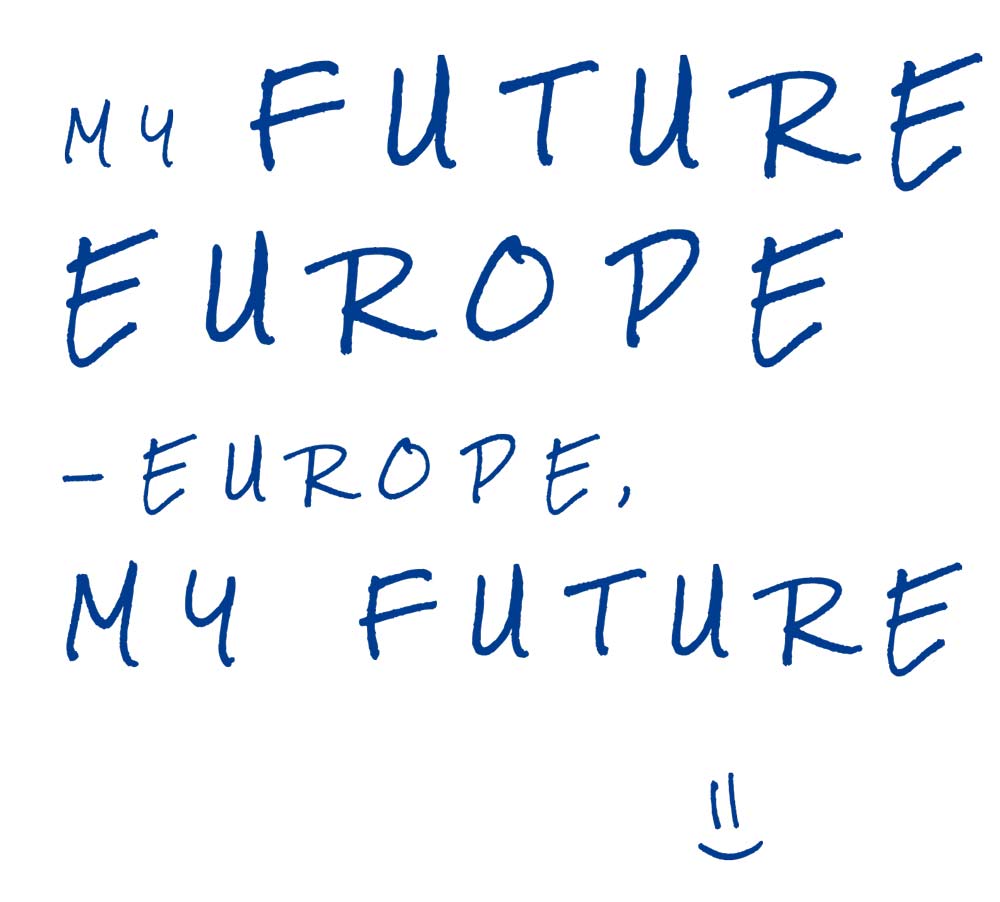 MY FUTURE
EUROPE
– EUROPE,
MY FUTURE